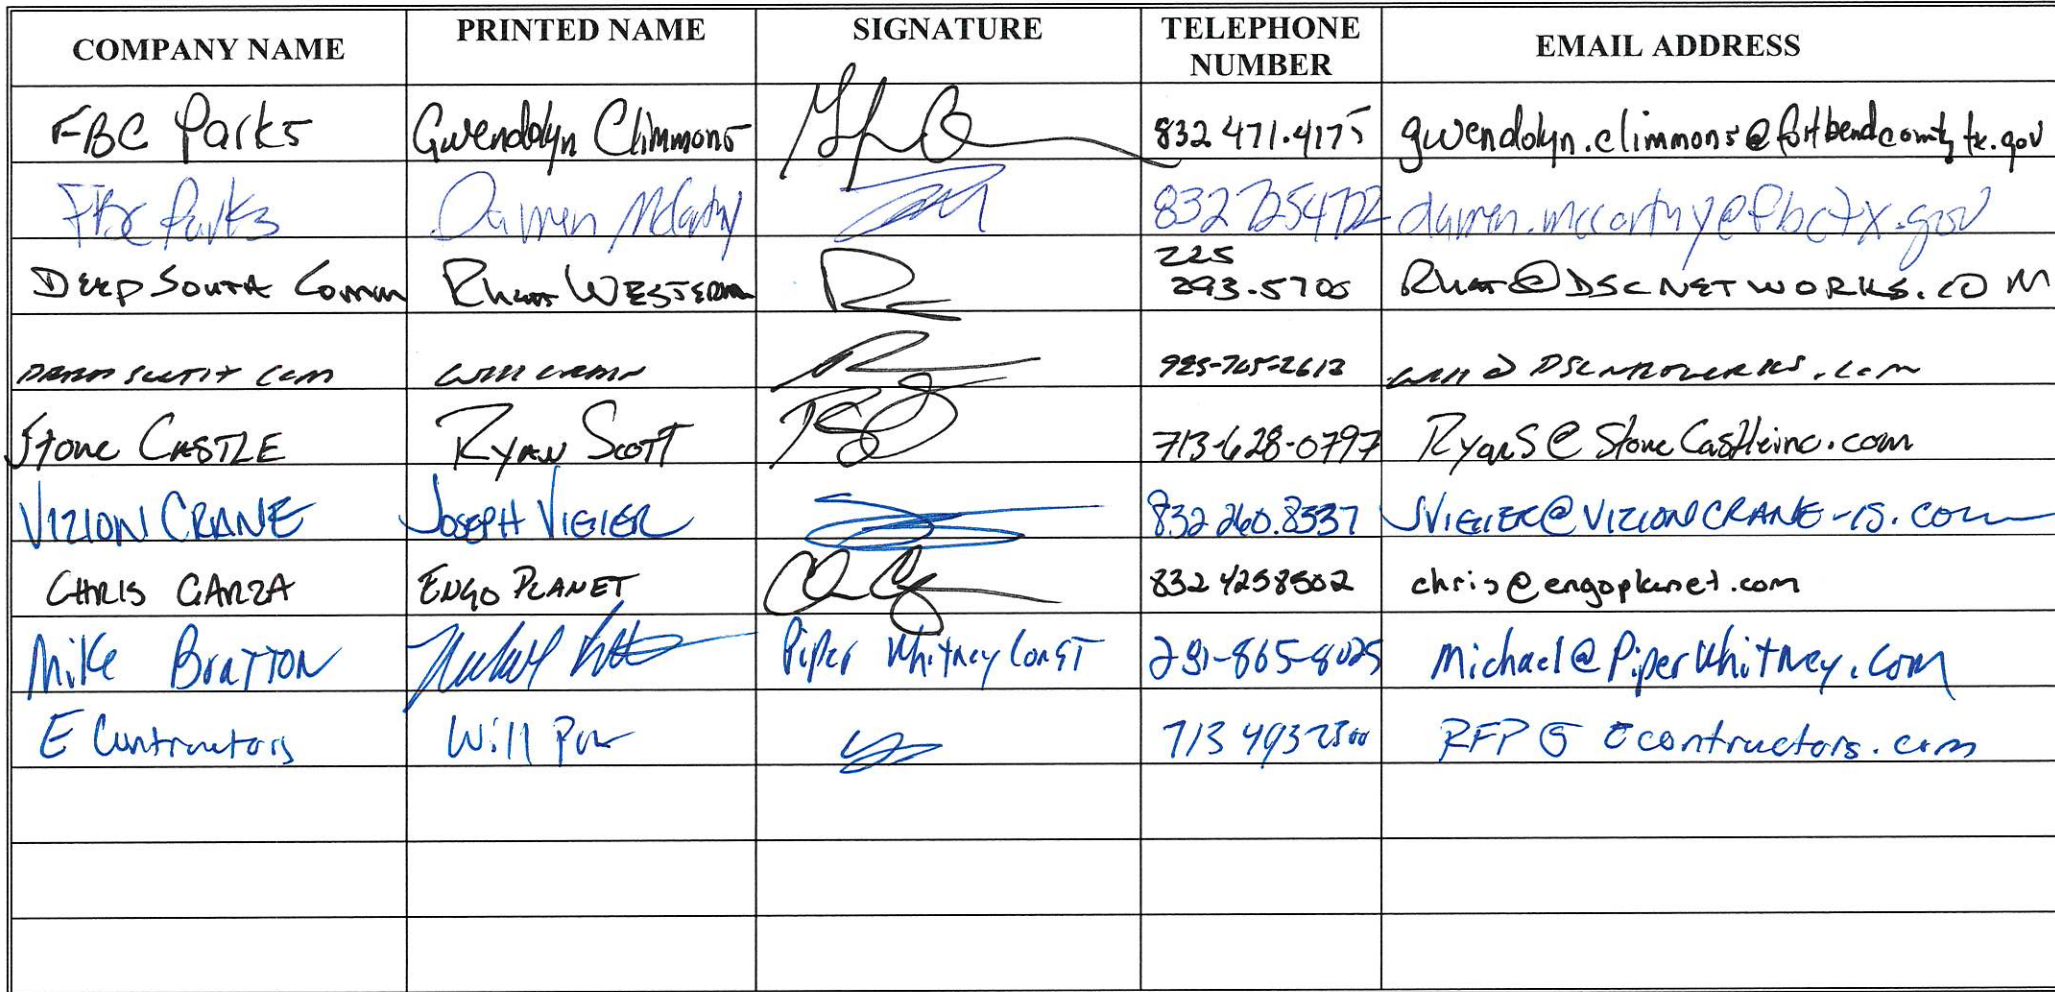 COMPANY NAME PRINTED NAME SIGNATURE TELEPHONE NUMBER EMAIL ADDRESS
FBC Parks Gwendolyn Climmons 832 471.4175 gwendolyn.climmons@fortbendcountytx.gov
FBC Parks Darren McCarthy 832 7254722 darren.mccarthy@fbctx.gov
225
DEEP SOUTH Comm 293.5700 @DSCNETWORKS.COM
DEEP SOUTH COM
STONE CASTLE RYAN SCOTT 713-628-0797 RyanS@StoneCastleinc.com
VIZION CRANE JOSEPH VIGIER 832 260.8337 JVIGIER@VIZIONCRANE-IS.COM
CHRIS GARZA ENGO PLANET 832 4258502 chris@engoplanet.com
Mike BraTTON Piper Whitney Const 281-865-8025 michael@PiperWhitney.com
E Contractors Will 713 493 2500 RFP@Econtractors.com